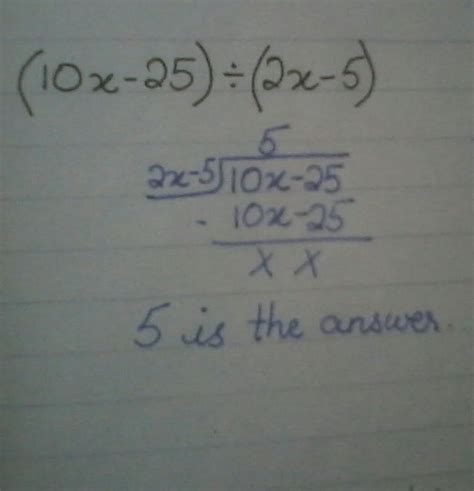 (10x-25)÷(2x-5)
5
2x-5)10x-25
- 10x-25
x x
5 is the answer.